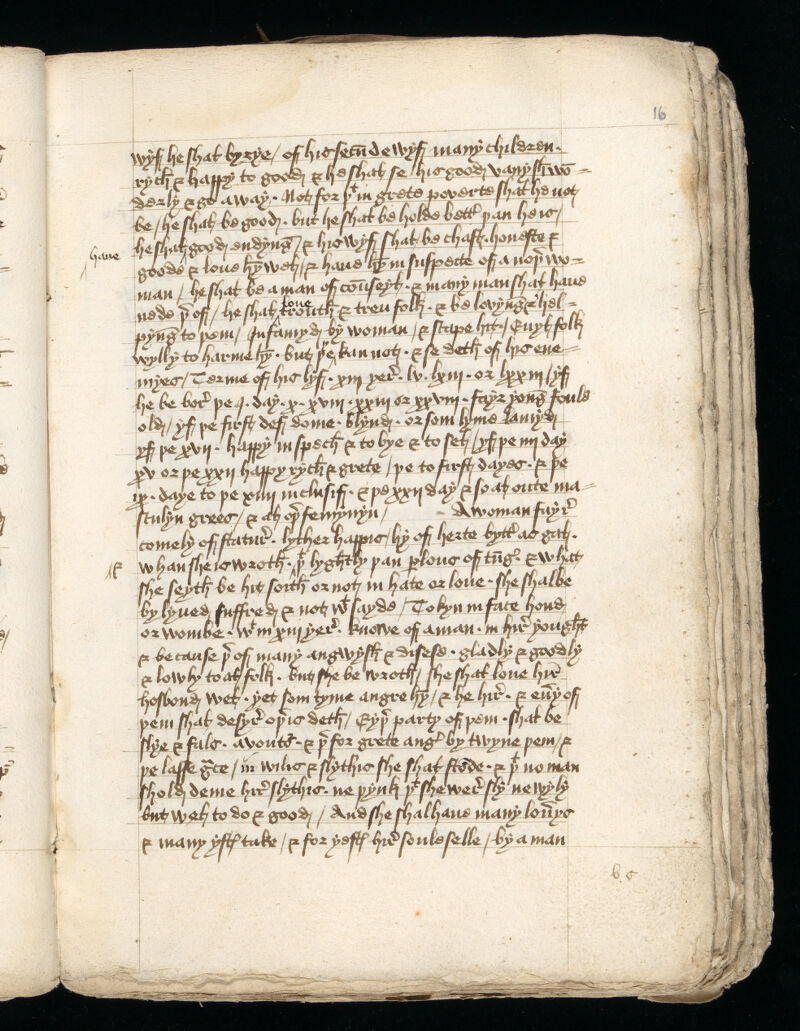 16
wyf he shal byrye / of his secūde wyf many children ·
rych & happy to good & he shal se his good vanysh wō =
derly & go a way · Not for þt in grete poverte shal he not
be / he shal be good · but he shal be holde bettr̄ þan he is /
he shal good endyng / & his wyf shal be chast · honeste &
have
goode & love hȳ wel / & have hȳ in suspecte of a noþr wo =
man / he shal be a man of coūseyl · & many man shal have
nede þr of / he shal love trouth & treu folk · & be lovyng & hel =
pyng to þem / Infamyd by woman / & scape hit / Evyl folk
wylly to harme hȳ · but þey kan not · & se deth of his ene =
myes / Terme of his lyf · xiii yer̄ · lv · lxiii · or lxxiii / yf
he be bor̄ þe · i · day · x · xviii · xxiii or xxviii · fayr yong foule
old / yf þe first def dome · blynd · or som lyme lamyd
yf þe xvii · happy in spech & to bye & to sell / yf þe iiii day
xv or þe xxii happy rych & grete / þe to first dayes · & þe
ix · daye to þe xiiii inclusif · & þe xxii day & so al oute ma =
sculyn grees / & al oþr femynyn / A woman fayr̄
comely of statur̄ · lyther happis / hy of herte byttr̄ as gall ·
whan she is wroth · þt lyghtly þan perlous of tūg & what
she seyth be hit soth or not in hate or love · she shal be
by lyved suffred & not wt sayde / Tokyn in face hond
or wombe · wt in xiii yer̄ · knowe of a man · in hir̄ yought
& be cause þr of many angwysh & disese · gladly & goodly
& lowly to al folk · but she be wroth / she shal love hir̄
hosbond wel · yet som tyme angre hȳ / & he hir̄ · & evy of
þem shal desyr̄ oþris deth / Eyþr party of þem · shal be
slye & fals · avoutr̄ · & þr for grete angr̄ by twyne þem / &
þe lasse grace / in wilis & slythis she shal stōde · & þt no man
shold deme hir̄ slythis · ne þynk þt she wer̄ sly ne wyly
but wel to do & good / And she shal have many lovys
& many yeft take / & for yeft hir̄ soule selle / by a man
b · c